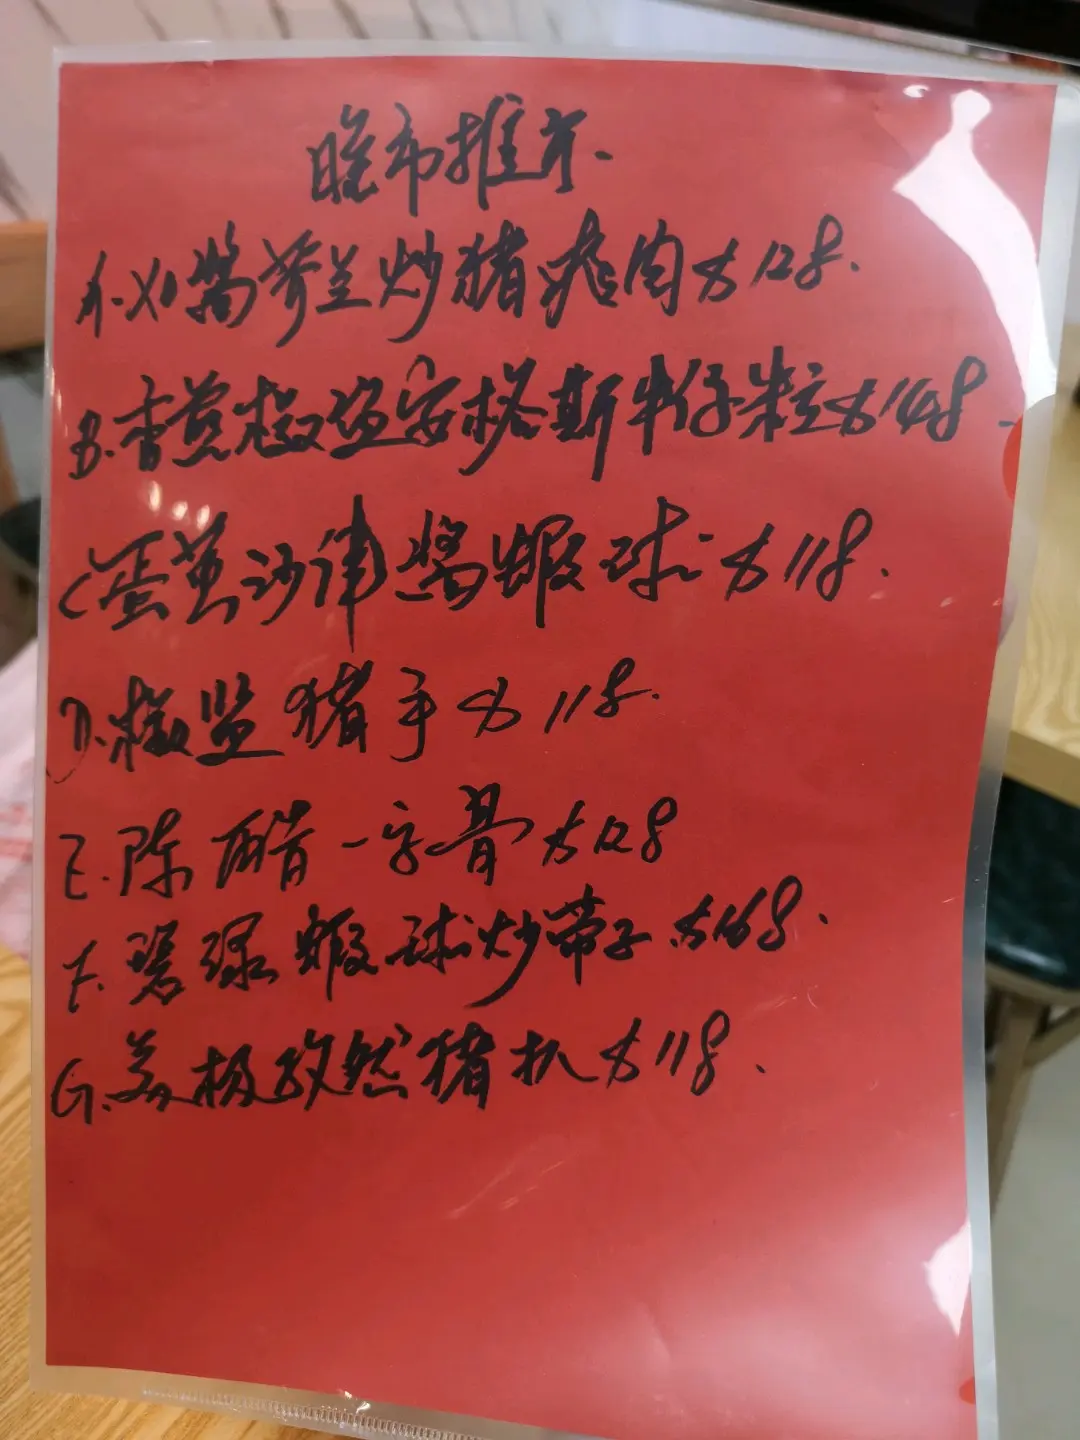 晚市推介.
A.XO醬芥兰炒猪肉$128.
B.香椒盐安格斯牛仔粒$148
C蛋黄沙律醬蝦球$118.
D.椒盐猪手$118.
E.陈醋一字骨$128
F.碧绿蝦球炒带子$168.
G.美极孜然猪扒$118.